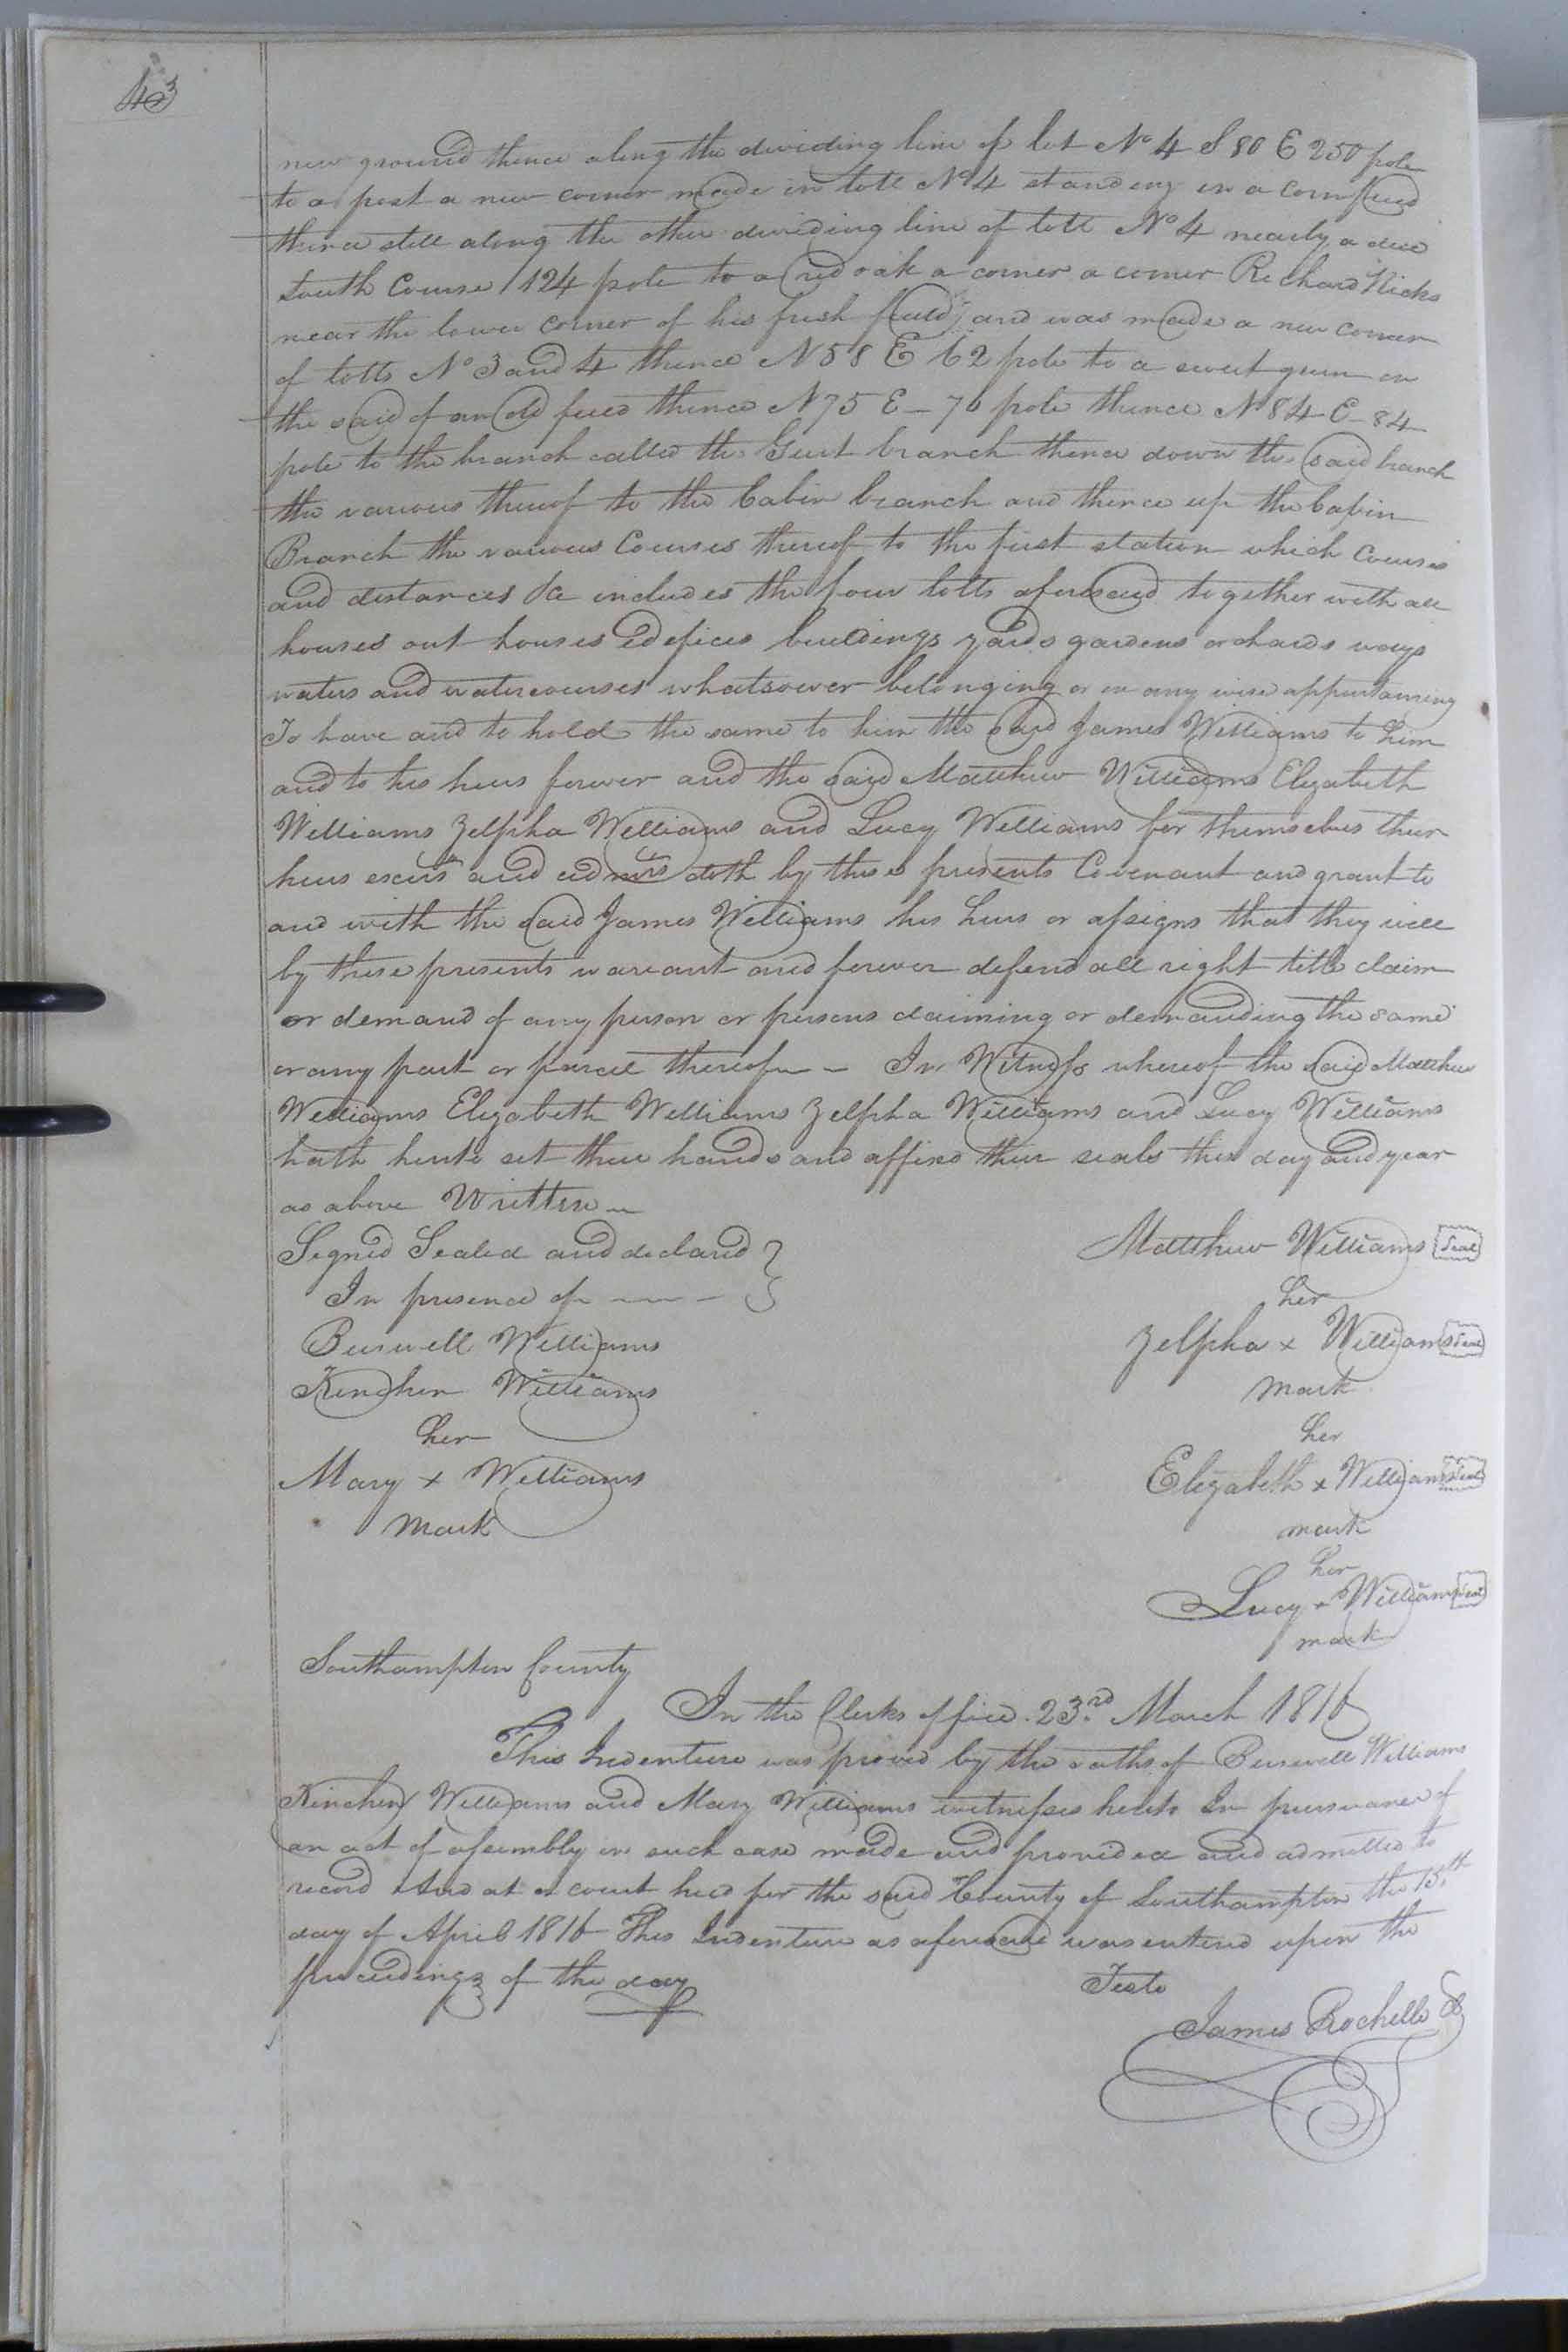 43
new ground thence along the dividing line of lot No 4 S 80 E 250 pole
to a post a new corner made in lott No 4 standing in a cornfield
thence still along the other dividing line of lott No 4 nearly a due
South Course 124 pole to a red oak a corner a corner Richard Ricks
near the lower corner of his fresh field, and was made a new corner
of lotts No 3 and 4 thence N 58 E 62 pole to a sweet gum on
the said of an old field thence N 75 E - 76 pole thence N 84 E - 84
pole to the branch called the Gut branch thence down the said branch
the various thereof to the Cabin branch and thence up the Cabin
Branch the various Courses thereof to the first station which Courses
and distances &c includes the four lotts aforesaid together with all
houses out houses Edefices buildings yards gardens orchards ways
waters and watercourses whatsoever belonging or in any wise appertaining
To have and to hold the same to him the said James Williams to him
and to his heirs forever and the said Matthew Williams Elizabeth
Williams Zelpha Williams and Lucy Williams for themselves their
heirs exects and admrs doth by these presents Covenant and grant to
and with the said James Williams his heirs or assigns that they will
by these presents warrant and forever defend all right title claim
or demand of any person or persons claiming or demanding the same
or any part or parcel thereof — In Witness whereof the said Matthew
Williams Elizabeth Williams Zelpha Williams and Lucy Williams
hath hereto set their hands and affixd their seals the day and year
as above Written
Signed Sealed and declared } Matthew Williams Seal
In presence of
her
Burwell Williams Zelpha x Williams Seal
Kinchen Williams mark
her her
Mary x Williams Elizabeth x Williams Seal
mark mark
her
Lucy x Williams Seal
mark
Southampton County
In the Clerks office 23rd March 1816
This Indenture was proved by the oaths of Burwell Williams
Kinchen Williams and Mary Williams witnesses hereto In pursuance of
an act of assembly in such case made and provided and admitted to
record And at a court held for the said County of Southampton the 15th
day of April 1816 This Indenture as aforesaid was entered upon the
proceedings of the day
Teste
James Rochelle